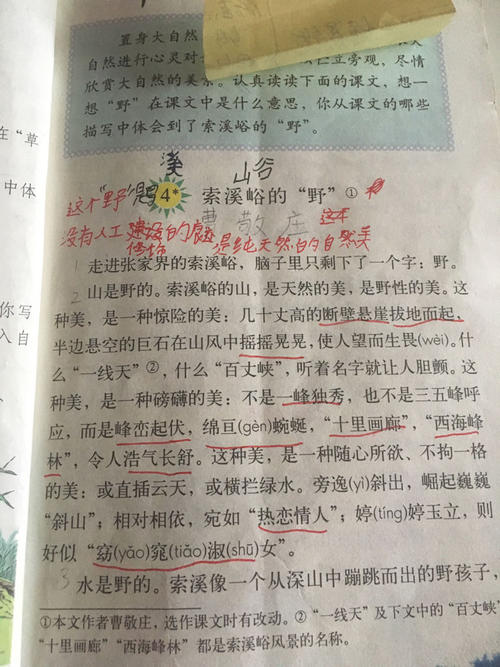 置身大自然
自然进行心灵对 伫立旁观，尽情
欣赏大自然的美景。认真读读下面的课文，想一
想“野”在课文中是什么意思，你从课文的哪些
描写中体会到了索溪峪的“野”。
在“草
中体
你写
入自
溪 山谷
4* 索溪峪的“野”①
这个“野”
曹敬庄
没有人工
修饰 是纯天然的自然美
1 走进张家界的索溪峪，脑子里只剩下了一个字：野。
2 山是野的。索溪峪的山，是天然的美，是野性的美。这
种美，是一种惊险的美：几十丈高的断壁悬崖拔地而起，
半边悬空的巨石在山风中摇摇晃晃，使人望而生畏(wèi)。什
么“一线天”②，什么“百丈峡”，听着名字就让人胆颤。这
种美，是一种磅礴的美：不是一峰独秀，也不是三五峰呼
应，而是峰峦起伏，绵亘(gèn)蜿蜒，“十里画廊”，“西海峰
林”，令人浩气长舒。这种美，是一种随心所欲、不拘一格
的美：或直插云天，或横拦绿水。旁逸(yì)斜出，崛起巍巍
“斜山”；相对相依，宛如“热恋情人”；婷(tíng)婷玉立，则
好似“窈(yǎo)窕(tiǎo)淑(shū)女”。
3 水是野的。索溪像一个从深山中蹦跳而出的野孩子，
①本文作者曹敬庄，选作课文时有改动。②“一线天”及下文中的“百丈峡”
“十里画廊”“西海峰林”都是索溪峪风景的名称。